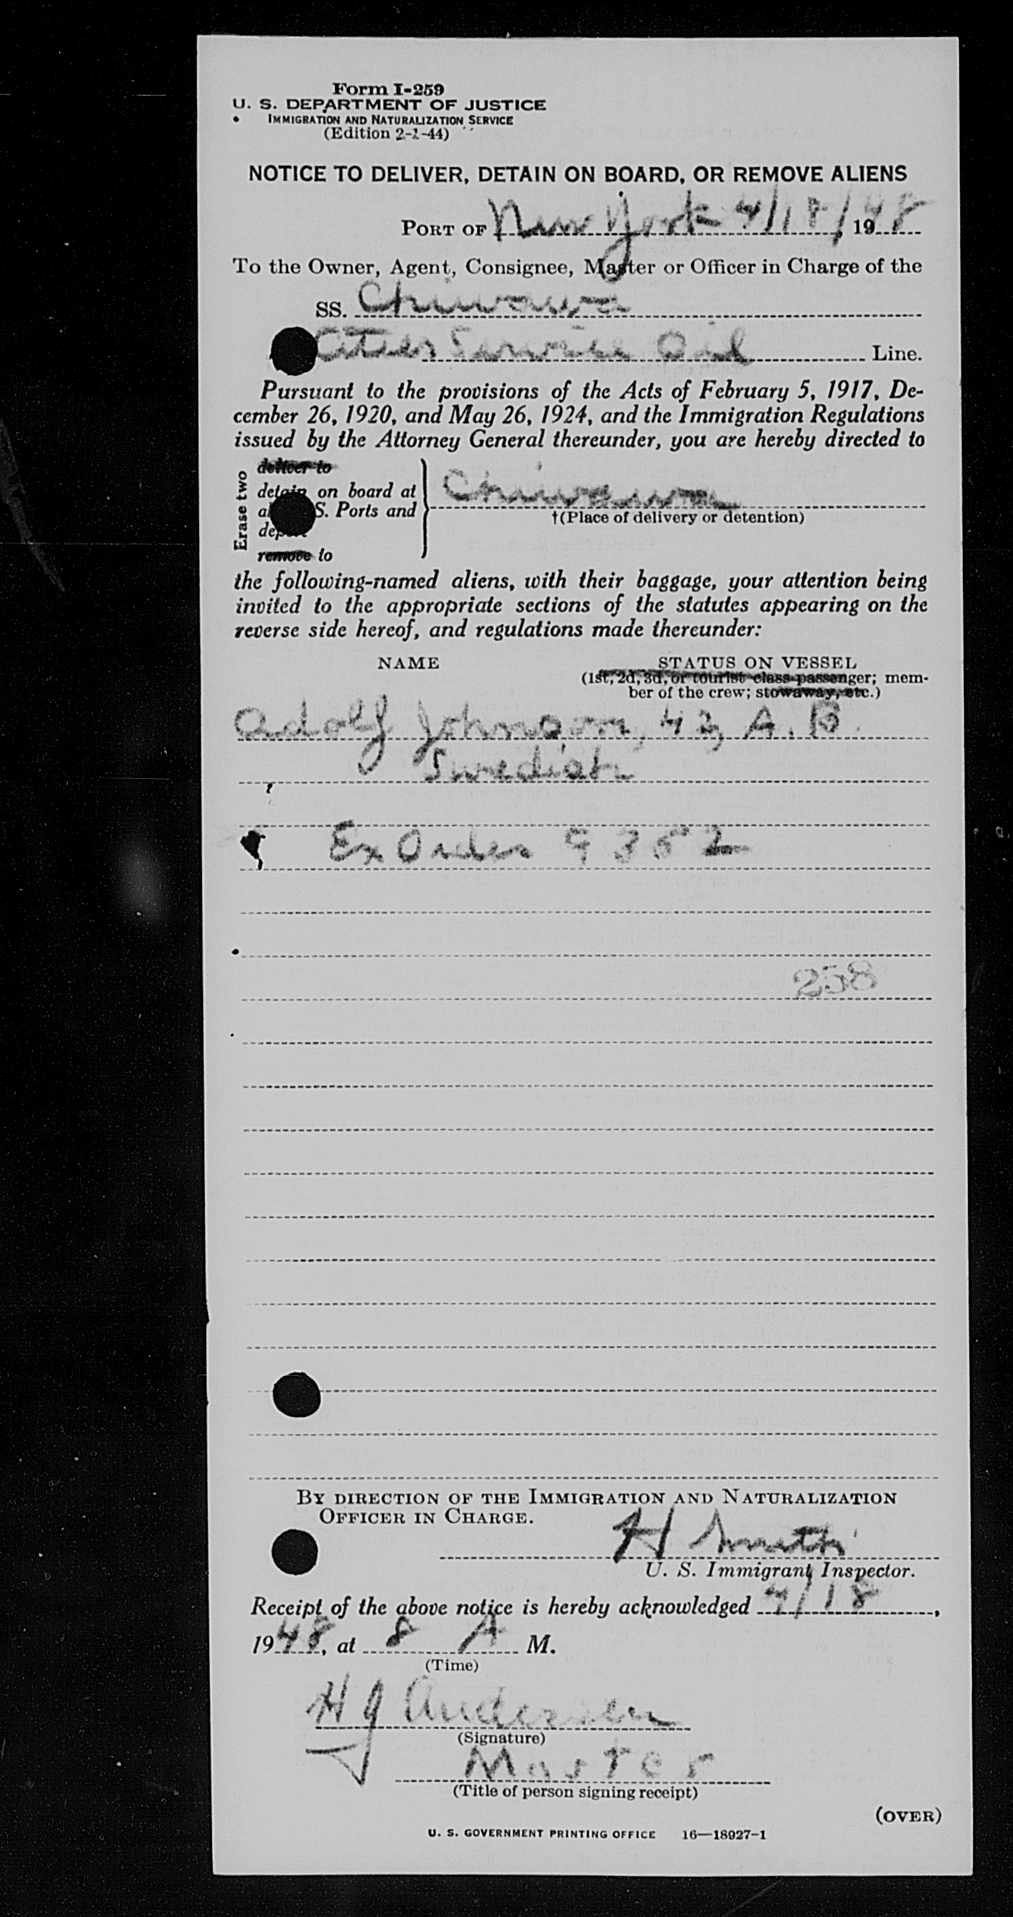 Form I-259
U. S. DEPARTMENT OF JUSTICE
IMMIGRATION AND NATURALIZATION SERVICE
(Edition 2-1-44)
NOTICE TO DELIVER, DETAIN ON BOARD, OR REMOVE ALIENS
PORT OF New York 4/18/, 1948
To the Owner, Agent, Consignee, Master or Officer in Charge of the
SS. Chiwawa
Cities Service Oil Line.
Pursuant to the provisions of the Acts of February 5, 1917, De-
cember 26, 1920, and May 26, 1924, and the Immigration Regulations
issued by the Attorney General thereunder, you are hereby directed to
Erase two
deliver to
detain on board at
S. Ports and
remove to
Chiwawa
†(Place of delivery or detention)
the following-named aliens, with their baggage, your attention being
invited to the appropriate sections of the statutes appearing on the
reverse side hereof, and regulations made thereunder:
NAME STATUS ON VESSEL
(1st, 2d, 3d, or tourist class passenger; mem-
ber of the crew; stowaway, etc.)
Adolf Johnson, 43, A. B.
Swedish
Ex Order 9352
258
BY DIRECTION OF THE IMMIGRATION AND NATURALIZATION
OFFICER IN CHARGE.
H Smith
U. S. Immigrant Inspector.
Receipt of the above notice is hereby acknowledged 4/18,
1948, at 8 A M.
(Time)
H J Andersen
(Signature)
Master
(Title of person signing receipt)
(OVER)
U. S. GOVERNMENT PRINTING OFFICE 16—18927-1